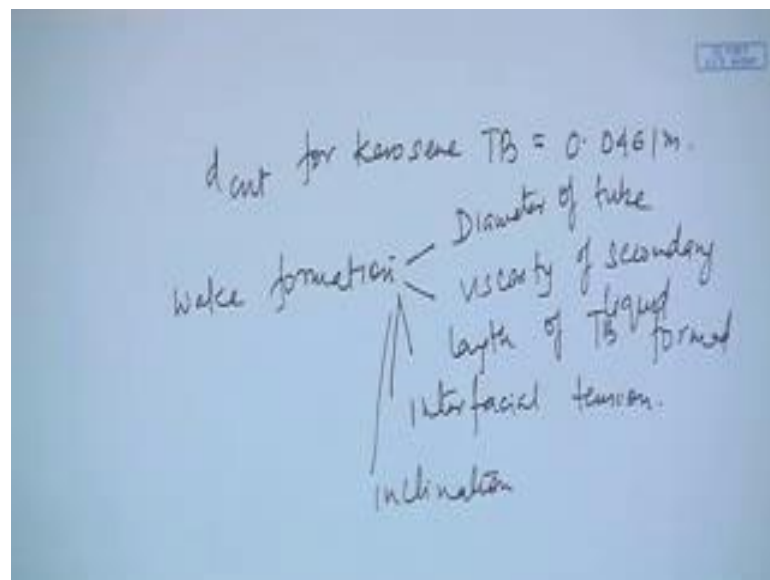 dcrit for kerosene TB = 0.0461m.
Wake formation
Diameter of tube
viscosity of secondary
liquid
length of TB formed
interfacial tension.
inclination